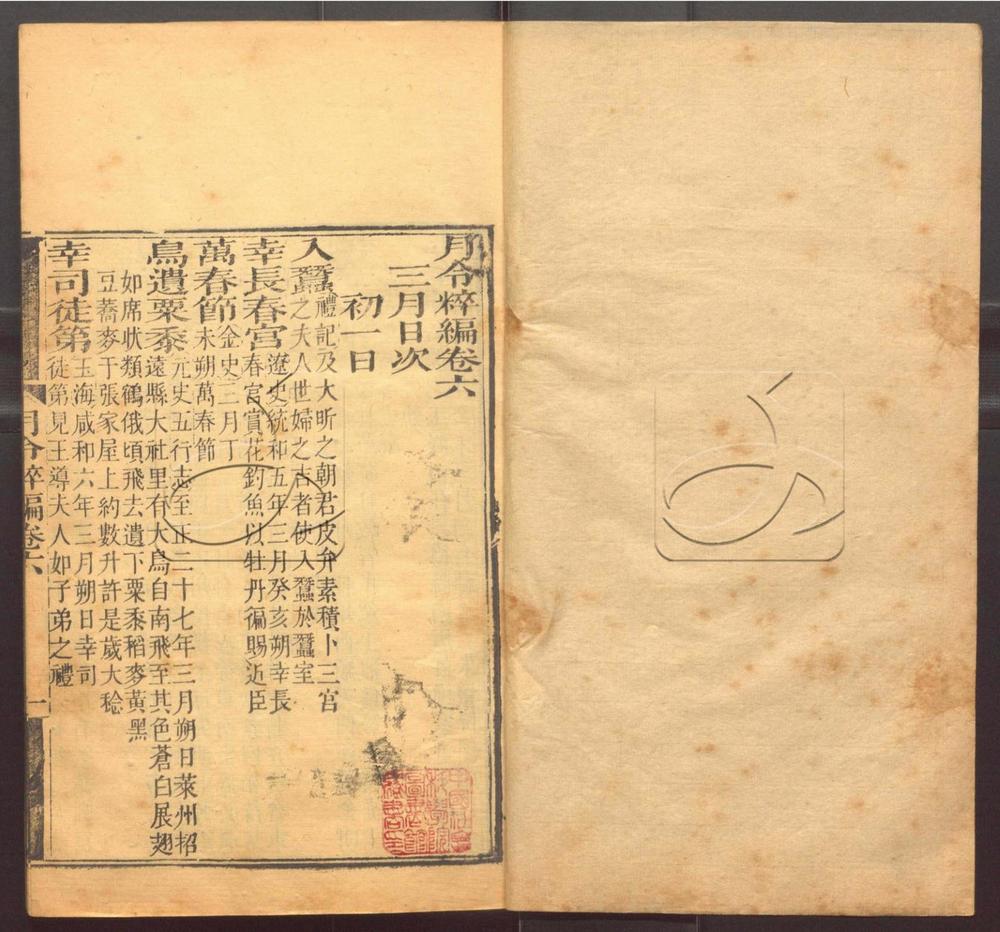 月令粹編卷六
三月日次
初一日
入蠶禮記及大昕之朝君皮弁素積卜三宮
之夫人世婦之吉者使入蠶於蠶室
幸長春宮遼史統和五年三月癸亥朔幸長
春宮賞花釣魚以牡丹徧賜近臣
萬春節金史三月丁
未朔萬春節
鳥遺粟黍元史五行志至正二十七年三月朔日萊州招
遠縣大社里有大鳥自南飛至其色蒼白展翅
如席狀類鶴俄頃飛去遺下粟黍稻麥黃黑
豆蕎麥于張家屋上約數升許是歲大稔
幸司徒第玉海咸和六年三月朔日幸司
徒第見王導夫人如子弟之禮
月令粹編卷六
一